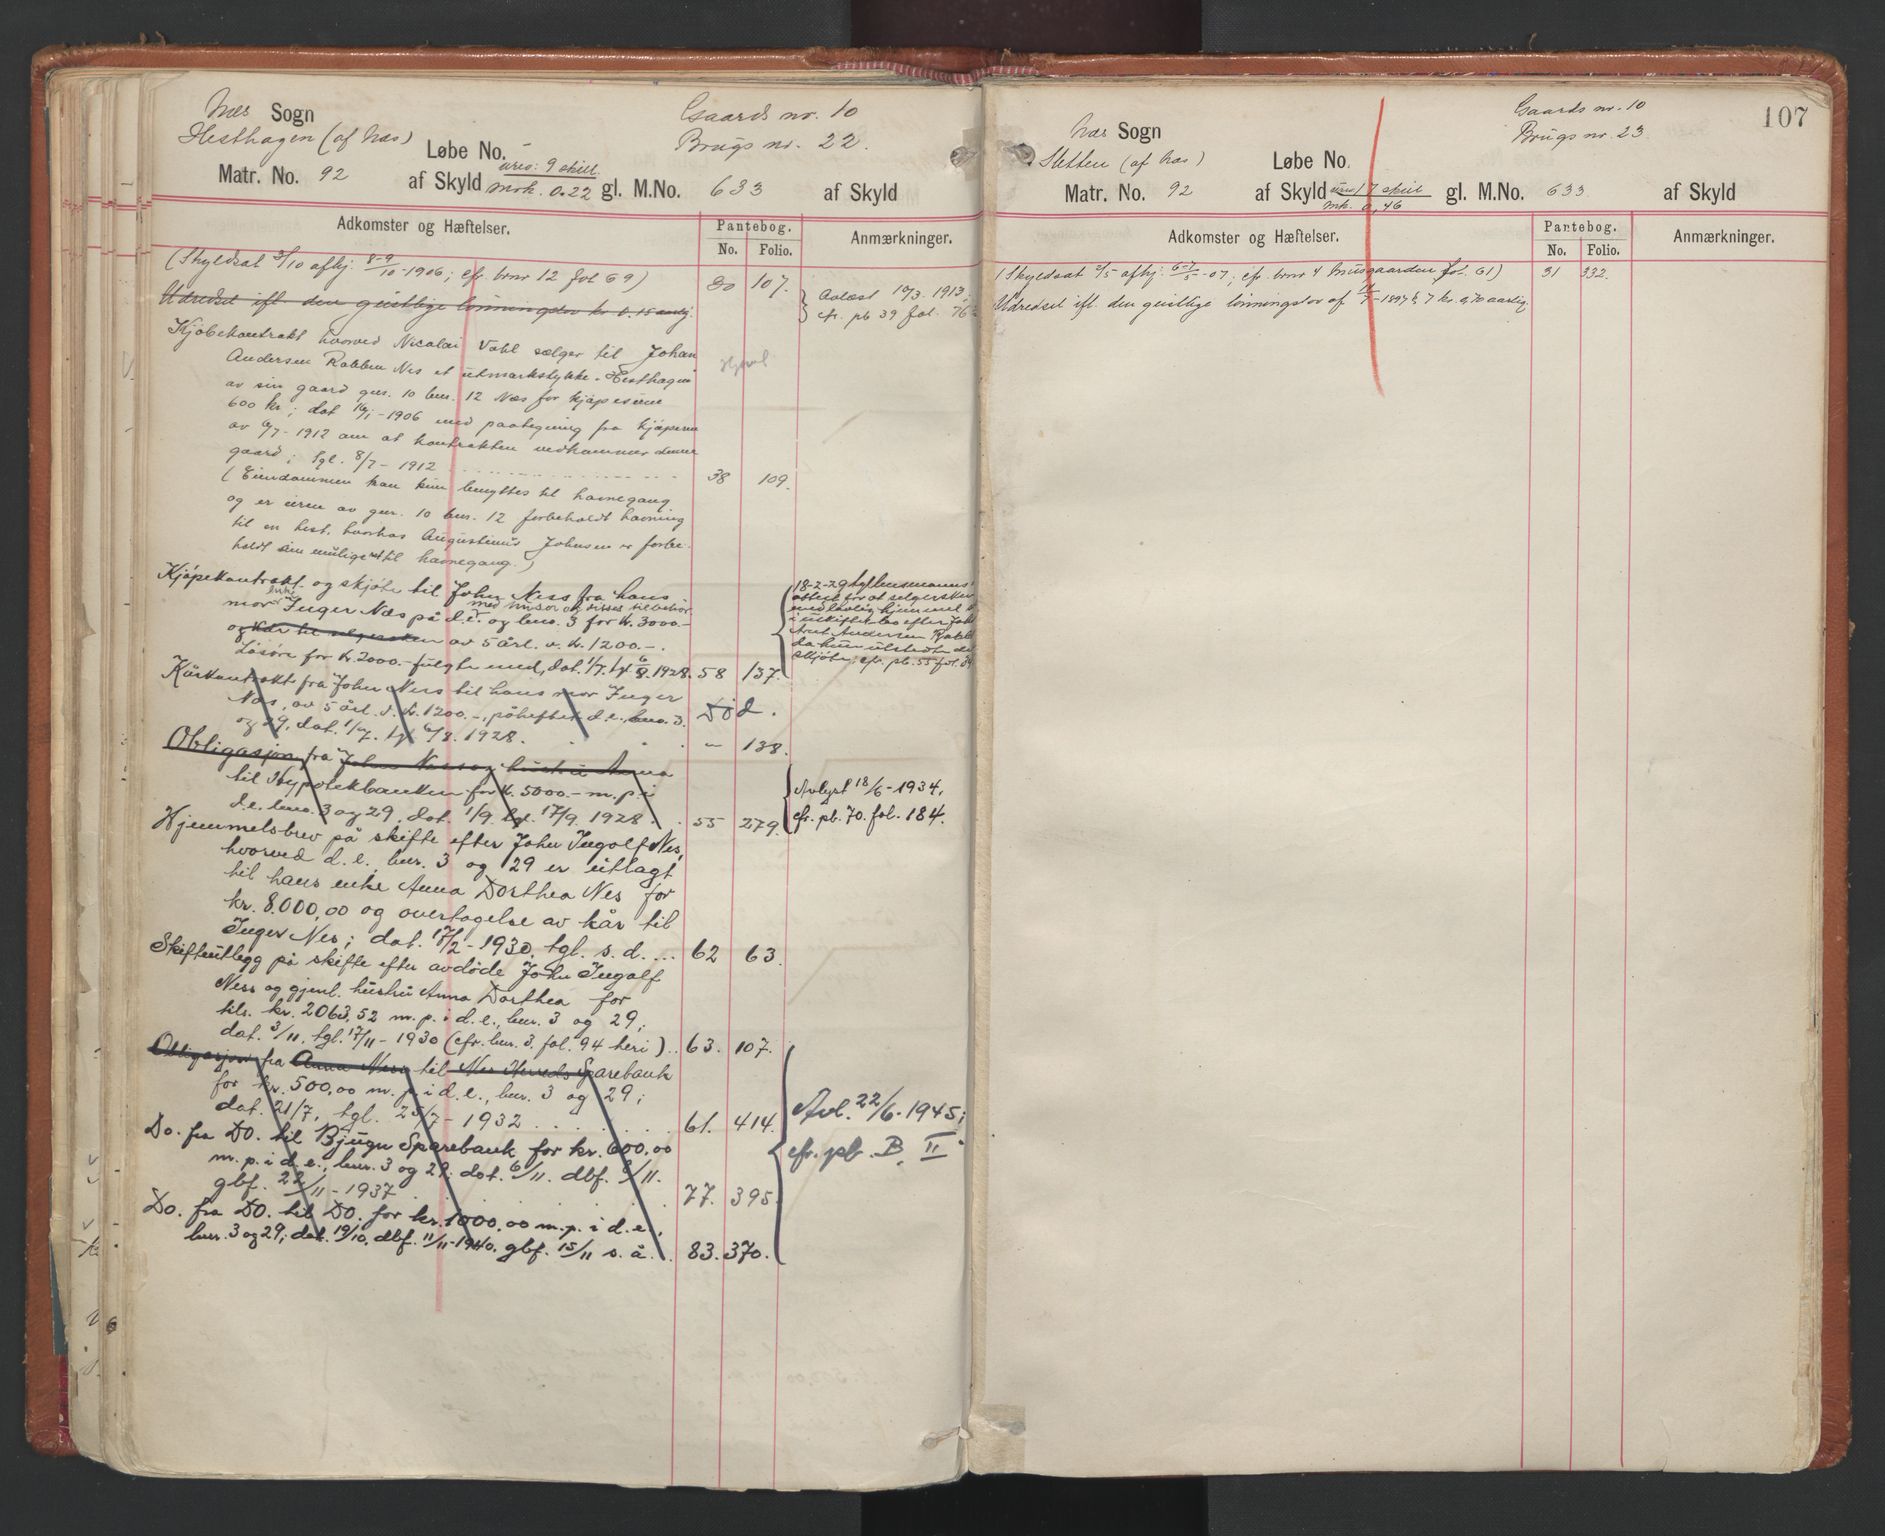 Næs Sogn
Gaards nr. 10
Hesthagen (af Næs)
Brugs nr. 22.
Løbe No. -
Matr. No. 92
af Skyld urev: 9 skill. mrk. 0.22 gl. M.No. 633 af Skyld
Adkomster og Hæftelser.
Pantebog.
No. Folio.
Anmærkninger.
(Skyldsat 3/10 afhj. 8-9/10-1906; cfr. brnr 12 fol 69) 107.
Udredsel ifl. den geistlige lønningslov kr 0.15 aarlig.
Avlæst 10/3. 1913;
cfr. pb 39 fol. 76
Kjøbekontrakt hvorved Nicolai Dahl sælger til Johan
Andersen Rabben Nes et utmarkstykke "Hesthagen"
av sin gaard gnr. 10 bnr. 12 Næs for kjøpesum
600 kr; dat 16/1-1906 med paategning fra kjøperen
av 6/7-1912 om at kontrakten vedkommer denne
gaard; tgl. 8/7-1912 38 109.
(Eiendommen kan kun benyttes til havnegang
og er eieren av gnr. 10 bnr. 12 forbeholdt havning
til en hest, hvorhos Augustinus Johnsen er forbe-
holdt sin mulige ret til havnegang.)
Kjøpekontrakt og skjøte til John Ness fra hans
mor Inger Næs på d.e. og bno. 3 for kr. 3000.-
med huser og disses tilbehør
av 5 årl. v. kr. 1200.-.
Løsøre for kr. 2000.- fulgte med, dat. 1/7. tgl 6/8. 1928. 58 137.
18-2-29 tgl lensmanns
attest for at selgersken
Kårkontrakt fra John Ness til hans mor Inger
Nes, av 5 årl. v. kr. 1200.-, påheftet d.e., bno. 3.
og 29, dat. 1/7. tgl 6/8. 1928. - 138.
Død.
Obligasjon fra John Ness og hustru Anna
til Hypotekbanken for kr. 5000.- m.p. i
d.e. bno. 3 og 29, dat. 1/9. tgl. 17/9. 1928. 55 279.
Avlyst 18/6-1934,
cfr. pb. 70. fol. 184.
Hjemmelsbrev på skifte efter John Ingolf Nes,
hvorved d.e. bnr. 3 og 29 er utlagt
til hans enke Anna Dorthea Nes for
kr. 8.000,00 og overtagelse av kår til
Inger Nes; dat. 17/2-1930, tgl. s. d. ... 62 63.
Skifteutlegg på skifte efter avdøde John Ingolf
Ness og gjenl. hustru Anna Dorthea for
tils. kr. 2063,52 m.p. i d.e., bnr. 3 og 29;
dat. 3/11, tgl. 17/11-1930 (cfr. bnr. 3. fol. 94 heri).. 63. 107.
Obligasjon fra Anna Ness til Nes Herreds Sparebank
for kr. 500,00 m.p. i d.e., bnr. 3 og 29;
dat. 21/7, tgl. 25/7-1932 ........ 61. 414.
Do. fra Do. til Bjugn Sparebank for kr. 600,00
m.p. i d.e., bnr. 3 og 29; dat. 6/11. dbf. 8/11.
gbf. 22/11-1937 77. 395.
Do. fra Do. til Do. for kr. 1000,00 m.p. i d.e.,
bnr. 3 og 29; dat. 19/10, dbf. 11/11-1940, gbf. 15/11 s. å. . 83. 370.
Avl. 22/6-1945;
cfr. pb. B. II
107
Næs Sogn
Gaards nr. 10
Sletten (af Næs)
Brugs nr. 23.
Løbe No.
Matr. No. 92
af Skyld urev 17 skill mk. 0,46 gl. M.No. 633 af Skyld
Adkomster og Hæftelser.
Pantebog.
No. Folio.
Anmærkninger.
(Skyldsat 2/5 afhj. 6-7/5-07; cfr. brnr 4 Nusgaarden fol. 61) 31 332.
Udredsel ifl. den geistlige lønningslov af 14/7-1897 § 7 kr. 0,70 aarlig.